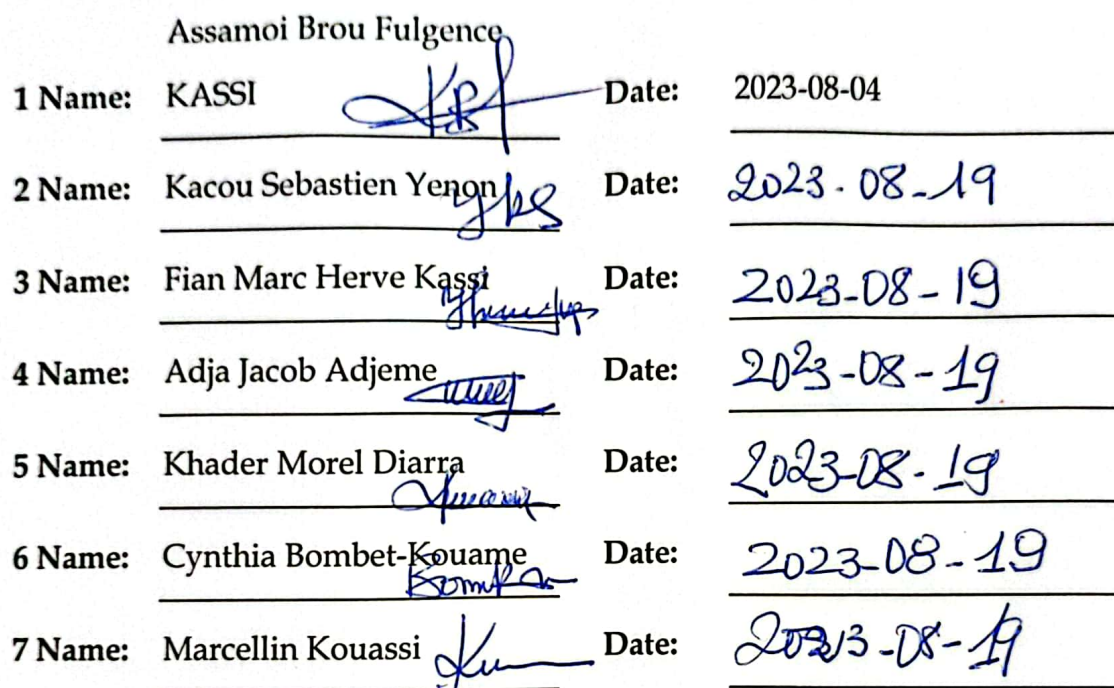 Assamoi Brou Fulgence
1 Name: KASSI Date: 2023-08-04
2 Name: Kacou Sebastien Yenon Date: 2023-08-19
3 Name: Fian Marc Herve Kassi Date: 2023-08-19
4 Name: Adja Jacob Adjeme Date: 2023-08-19
5 Name: Khader Morel Diarra Date: 2023-08-19
6 Name: Cynthia Bombet-Kouame Date: 2023-08-19
7 Name: Marcellin Kouassi Date: 2023-08-19